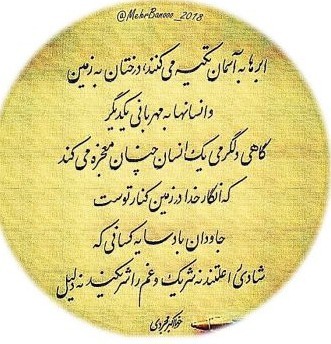 @MehrBanooo_2018
ابرها به آسمان تکیه می کنند، درختان به زمین
و انسانها به مهربانی یکدیگر
گاهی دلگرمی یک انسان چنان معجزه می کند
که انگار خدا در زمین کنار توست
جاودان باد سایه کسانی که
شادی را علتند نه شریک و غم را شریکند نه دلیل